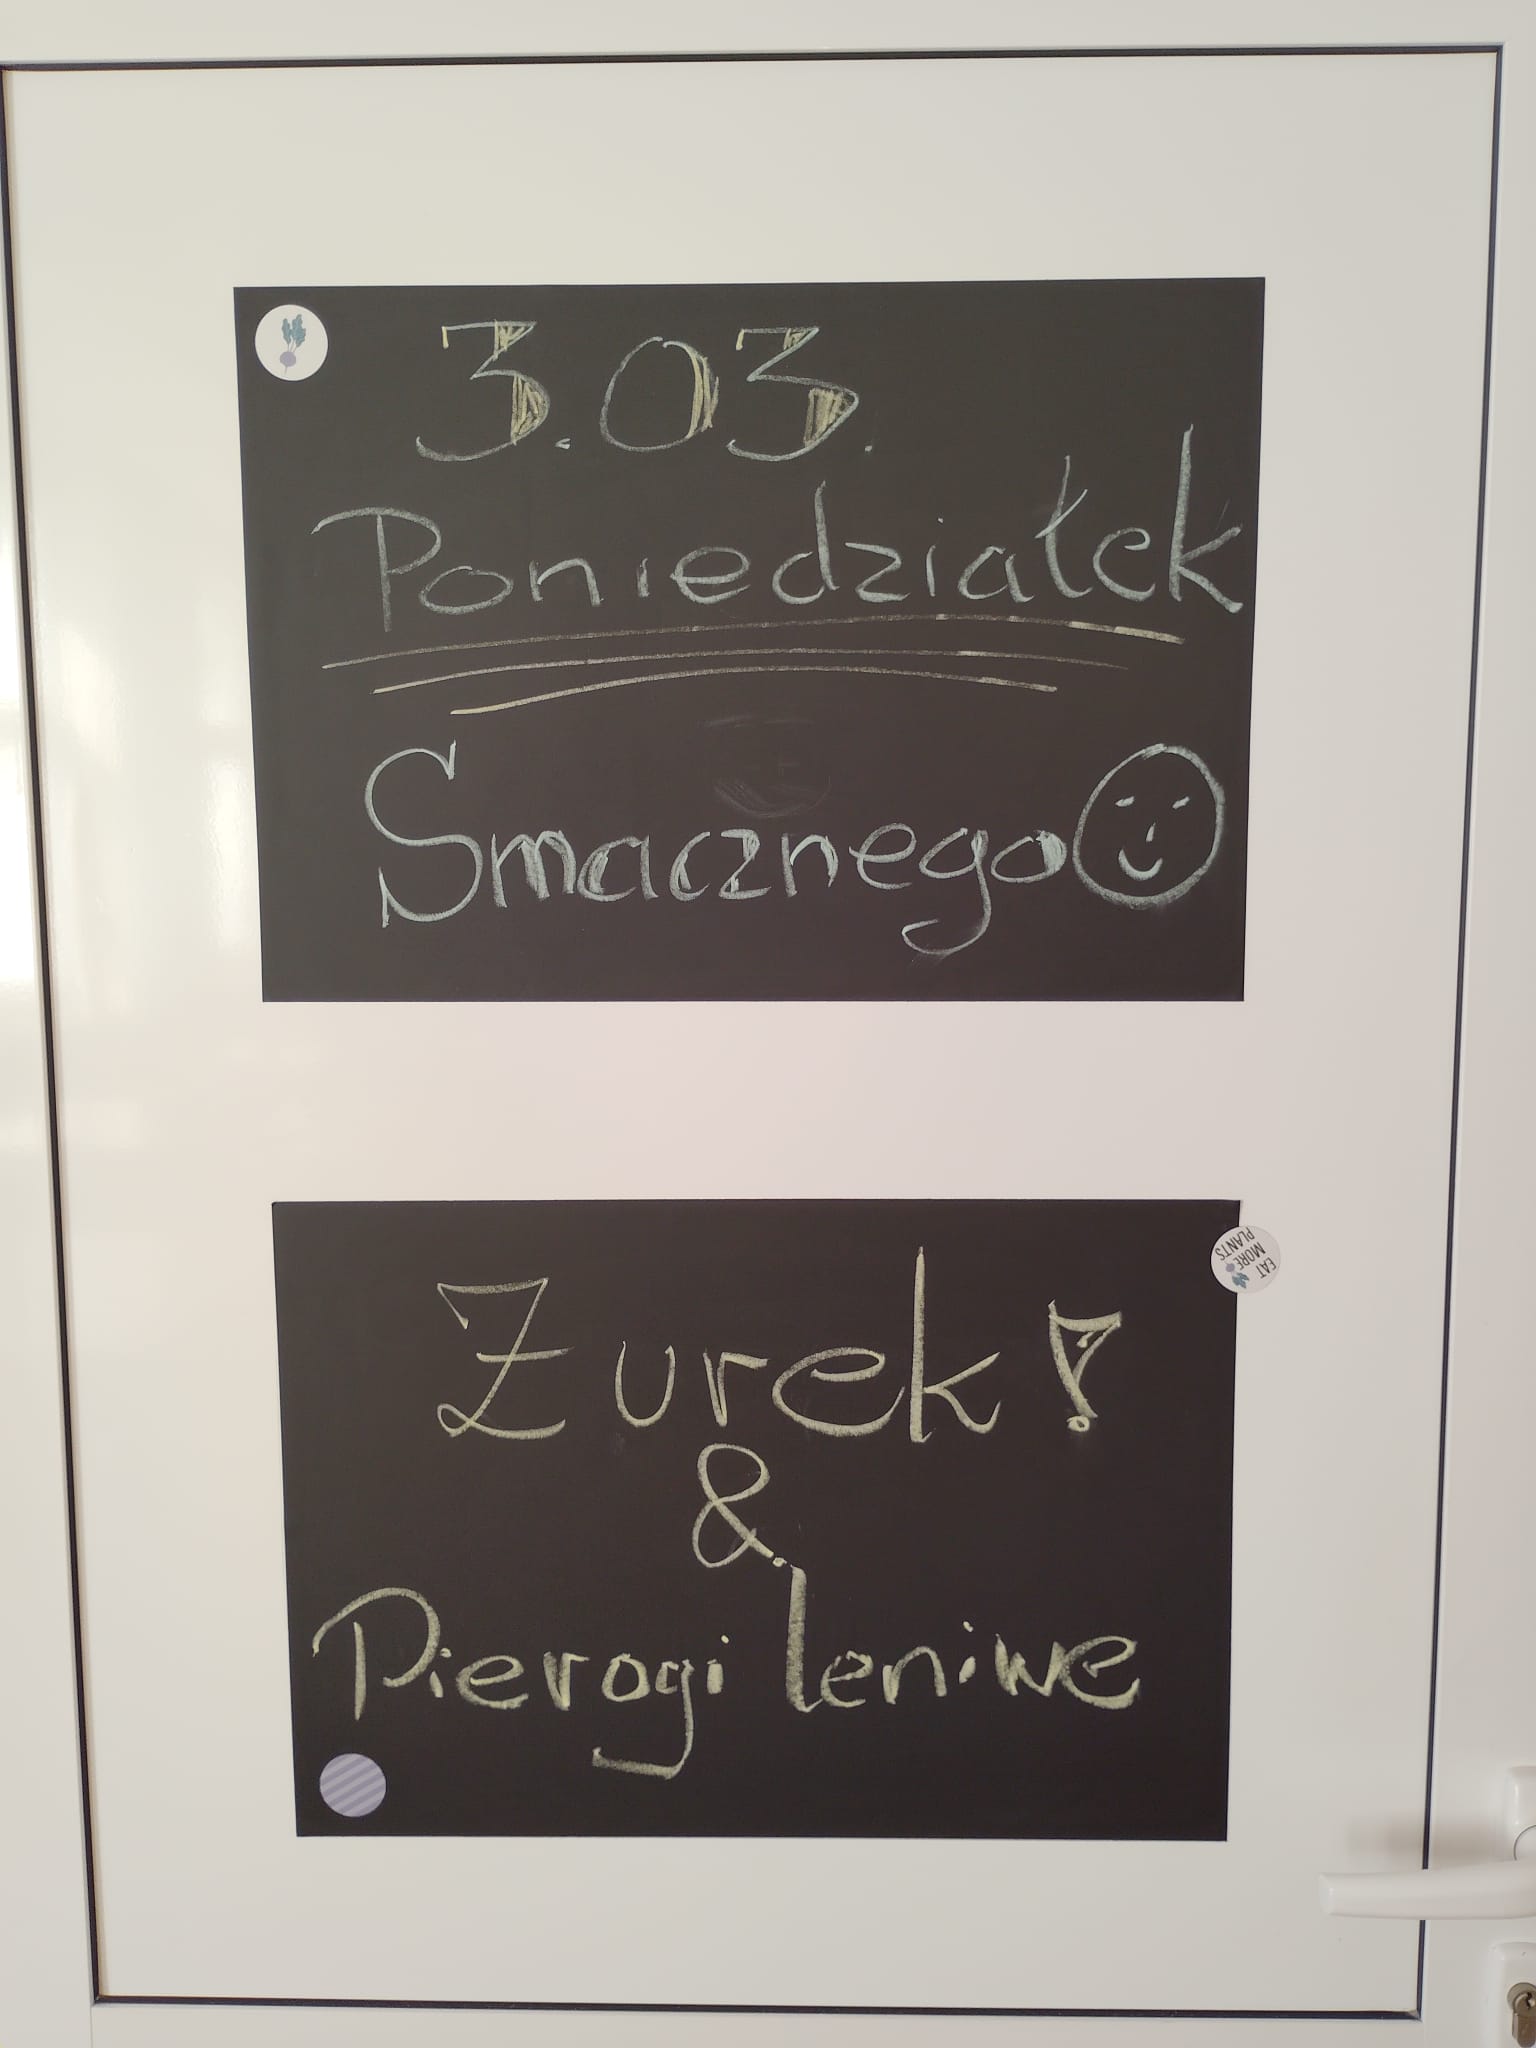 3.03.
Poniedziałek
Smacznego
EAT
MORE
PLANTS
Żurek!
&
Pierogi leniwe